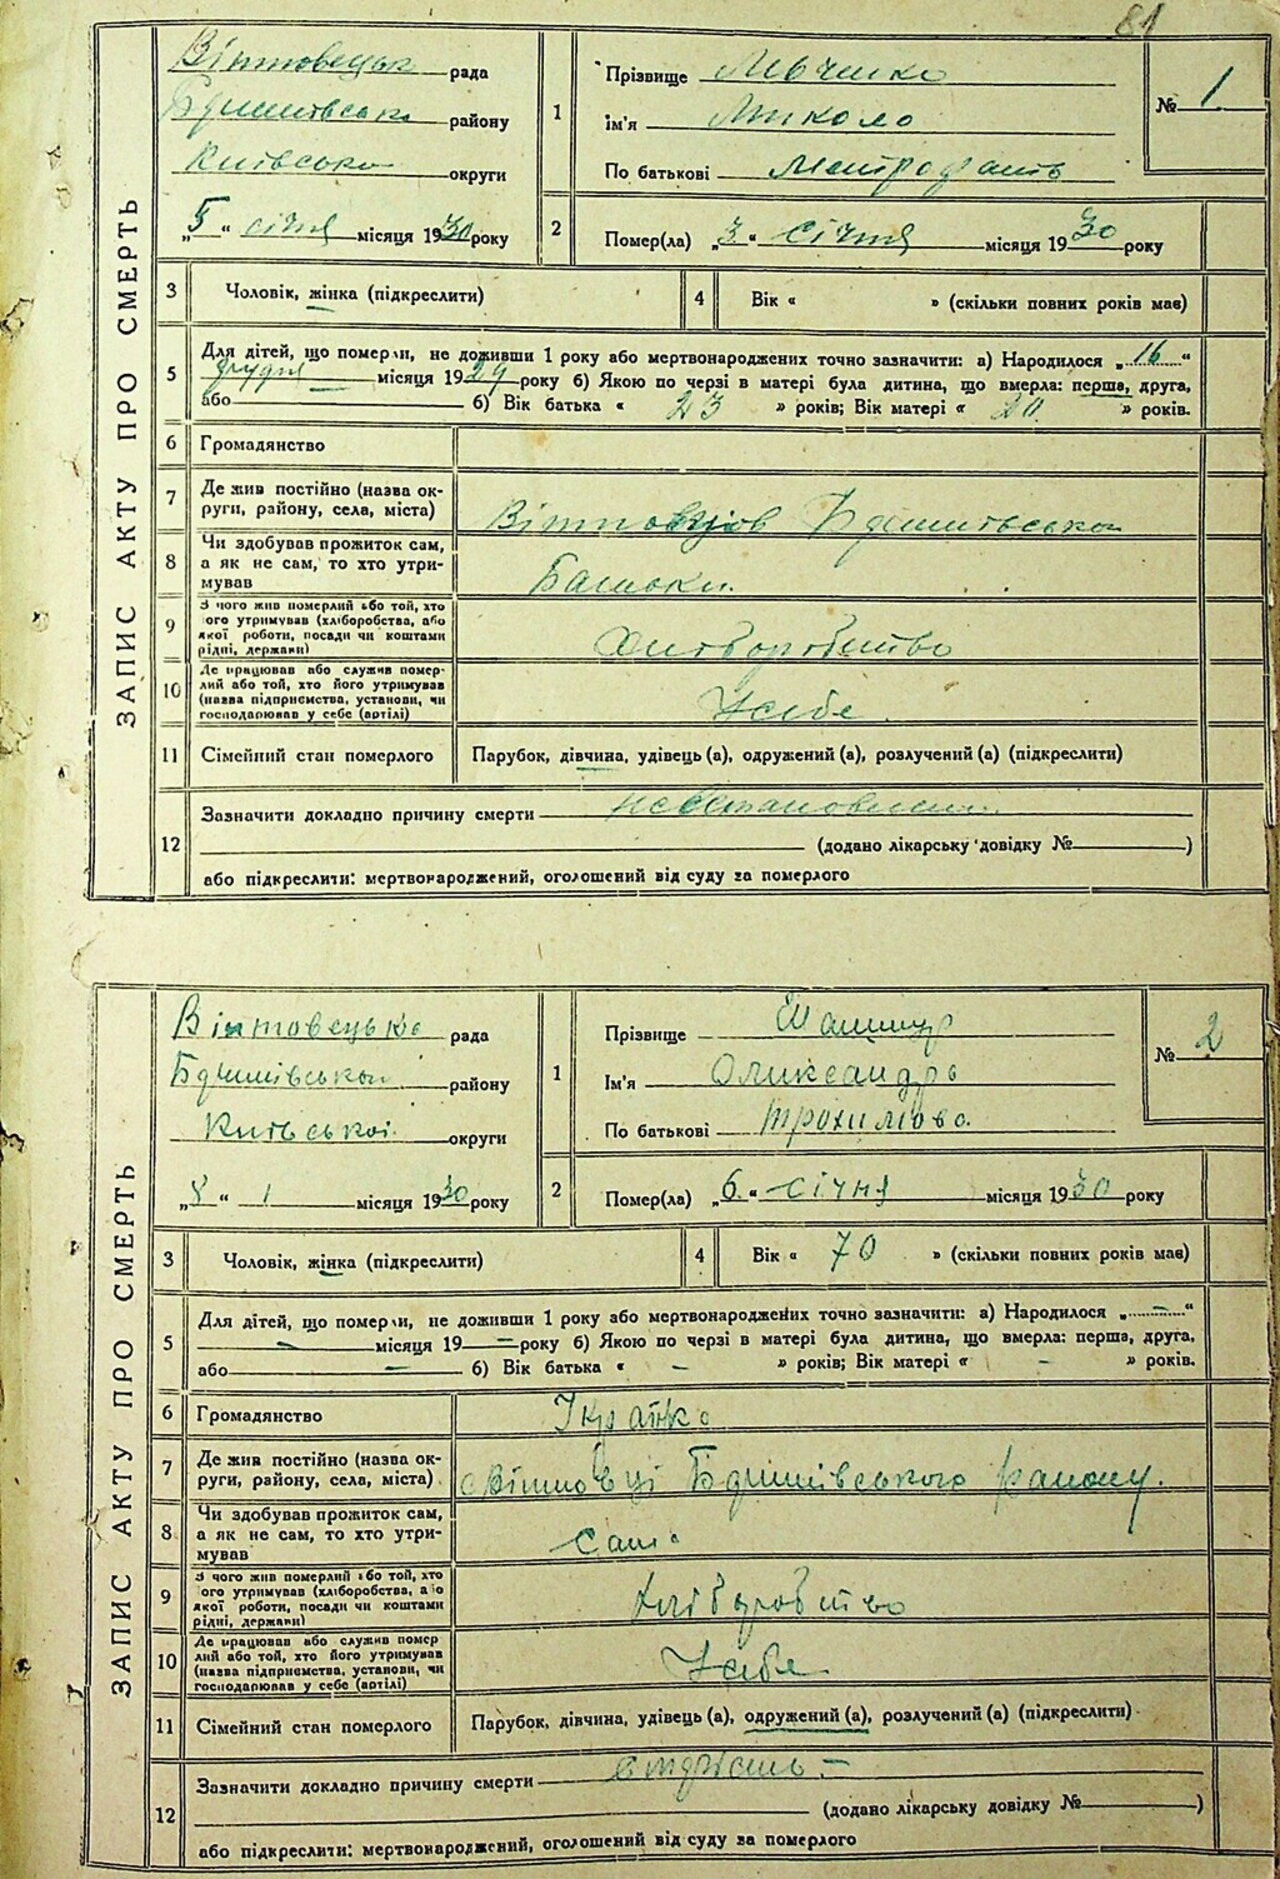 81
ЗАПИС АКТУ ПРО СМЕРТЬ
рада
району
Київсько округи
„5“ січня місяця 1930 року
1 Прізвище
Ім'я Микола
По батькові
№ 1
2 Помер(ла) „3“ Січня місяця 1930 року
3 Чоловік, жінка (підкреслити)
4 Вік « » (скільки повних років має)
5 Для дітей, що померли, не доживши 1 року або мертвонароджених точно зазначити: а) Народилося „16“
грудня місяця 1929 року б) Якою по черзі в матері була дитина, що вмерла: перша, друга,
або б) Вік батька « 23 » років; Вік матері « 20 » років.
6 Громадянство
7 Де жив постійно (назва ок-
руги, району, села, міста)
8 Чи здобував прожиток сам,
а як не сам, то хто утри-
мував
Батьки.
9 З чого жив померлий або той, хто
його утримував (хліборобства, або
якої роботи, посади чи коштами
рідні, держави)
10 Де працював або служив помер-
лий або той, хто його утримував
(назва підприємства, установи, чи
господарював у себе (артілі)
У себе
11 Сімейний стан померлого Парубок, дівчина, удівець (а), одружений (а), розлучений (а) (підкреслити)
12 Зазначити докладно причину смерти
(додано лікарську довідку № )
або підкреслити: мертвонароджений, оголошений від суду за померлого
ЗАПИС АКТУ ПРО СМЕРТЬ
рада
району
Київської округи
„8“ 1 місяця 1930 року
1 Прізвище
Ім'я Олександра
По батькові Трохимова
№ 2
2 Помер(ла) „6“ Січня місяця 1930 року
3 Чоловік, жінка (підкреслити)
4 Вік « 70 » (скільки повних років має)
5 Для дітей, що померли, не доживши 1 року або мертвонароджених точно зазначити: а) Народилося „–“
– місяця 19 – року б) Якою по черзі в матері була дитина, що вмерла: перша, друга,
або – б) Вік батька « – » років; Вік матері « – » років.
6 Громадянство
7 Де жив постійно (назва ок-
руги, району, села, міста)
району.
8 Чи здобував прожиток сам,
а як не сам, то хто утри-
мував
Сама
9 З чого жив померлий або той, хто
його утримував (хліборобства, або
якої роботи, посади чи коштами
рідні, держави)
хліборобство
10 Де працював або служив помер
лий або той, хто його утримував
(назва підприємства, установи, чи
господарював у себе (артілі)
У себе
11 Сімейний стан померлого Парубок, дівчина, удівець (а), одружений (а), розлучений (а) (підкреслити)
12 Зазначити докладно причину смерти
(додано лікарську довідку № )
або підкреслити: мертвонароджений, оголошений від суду за померлого